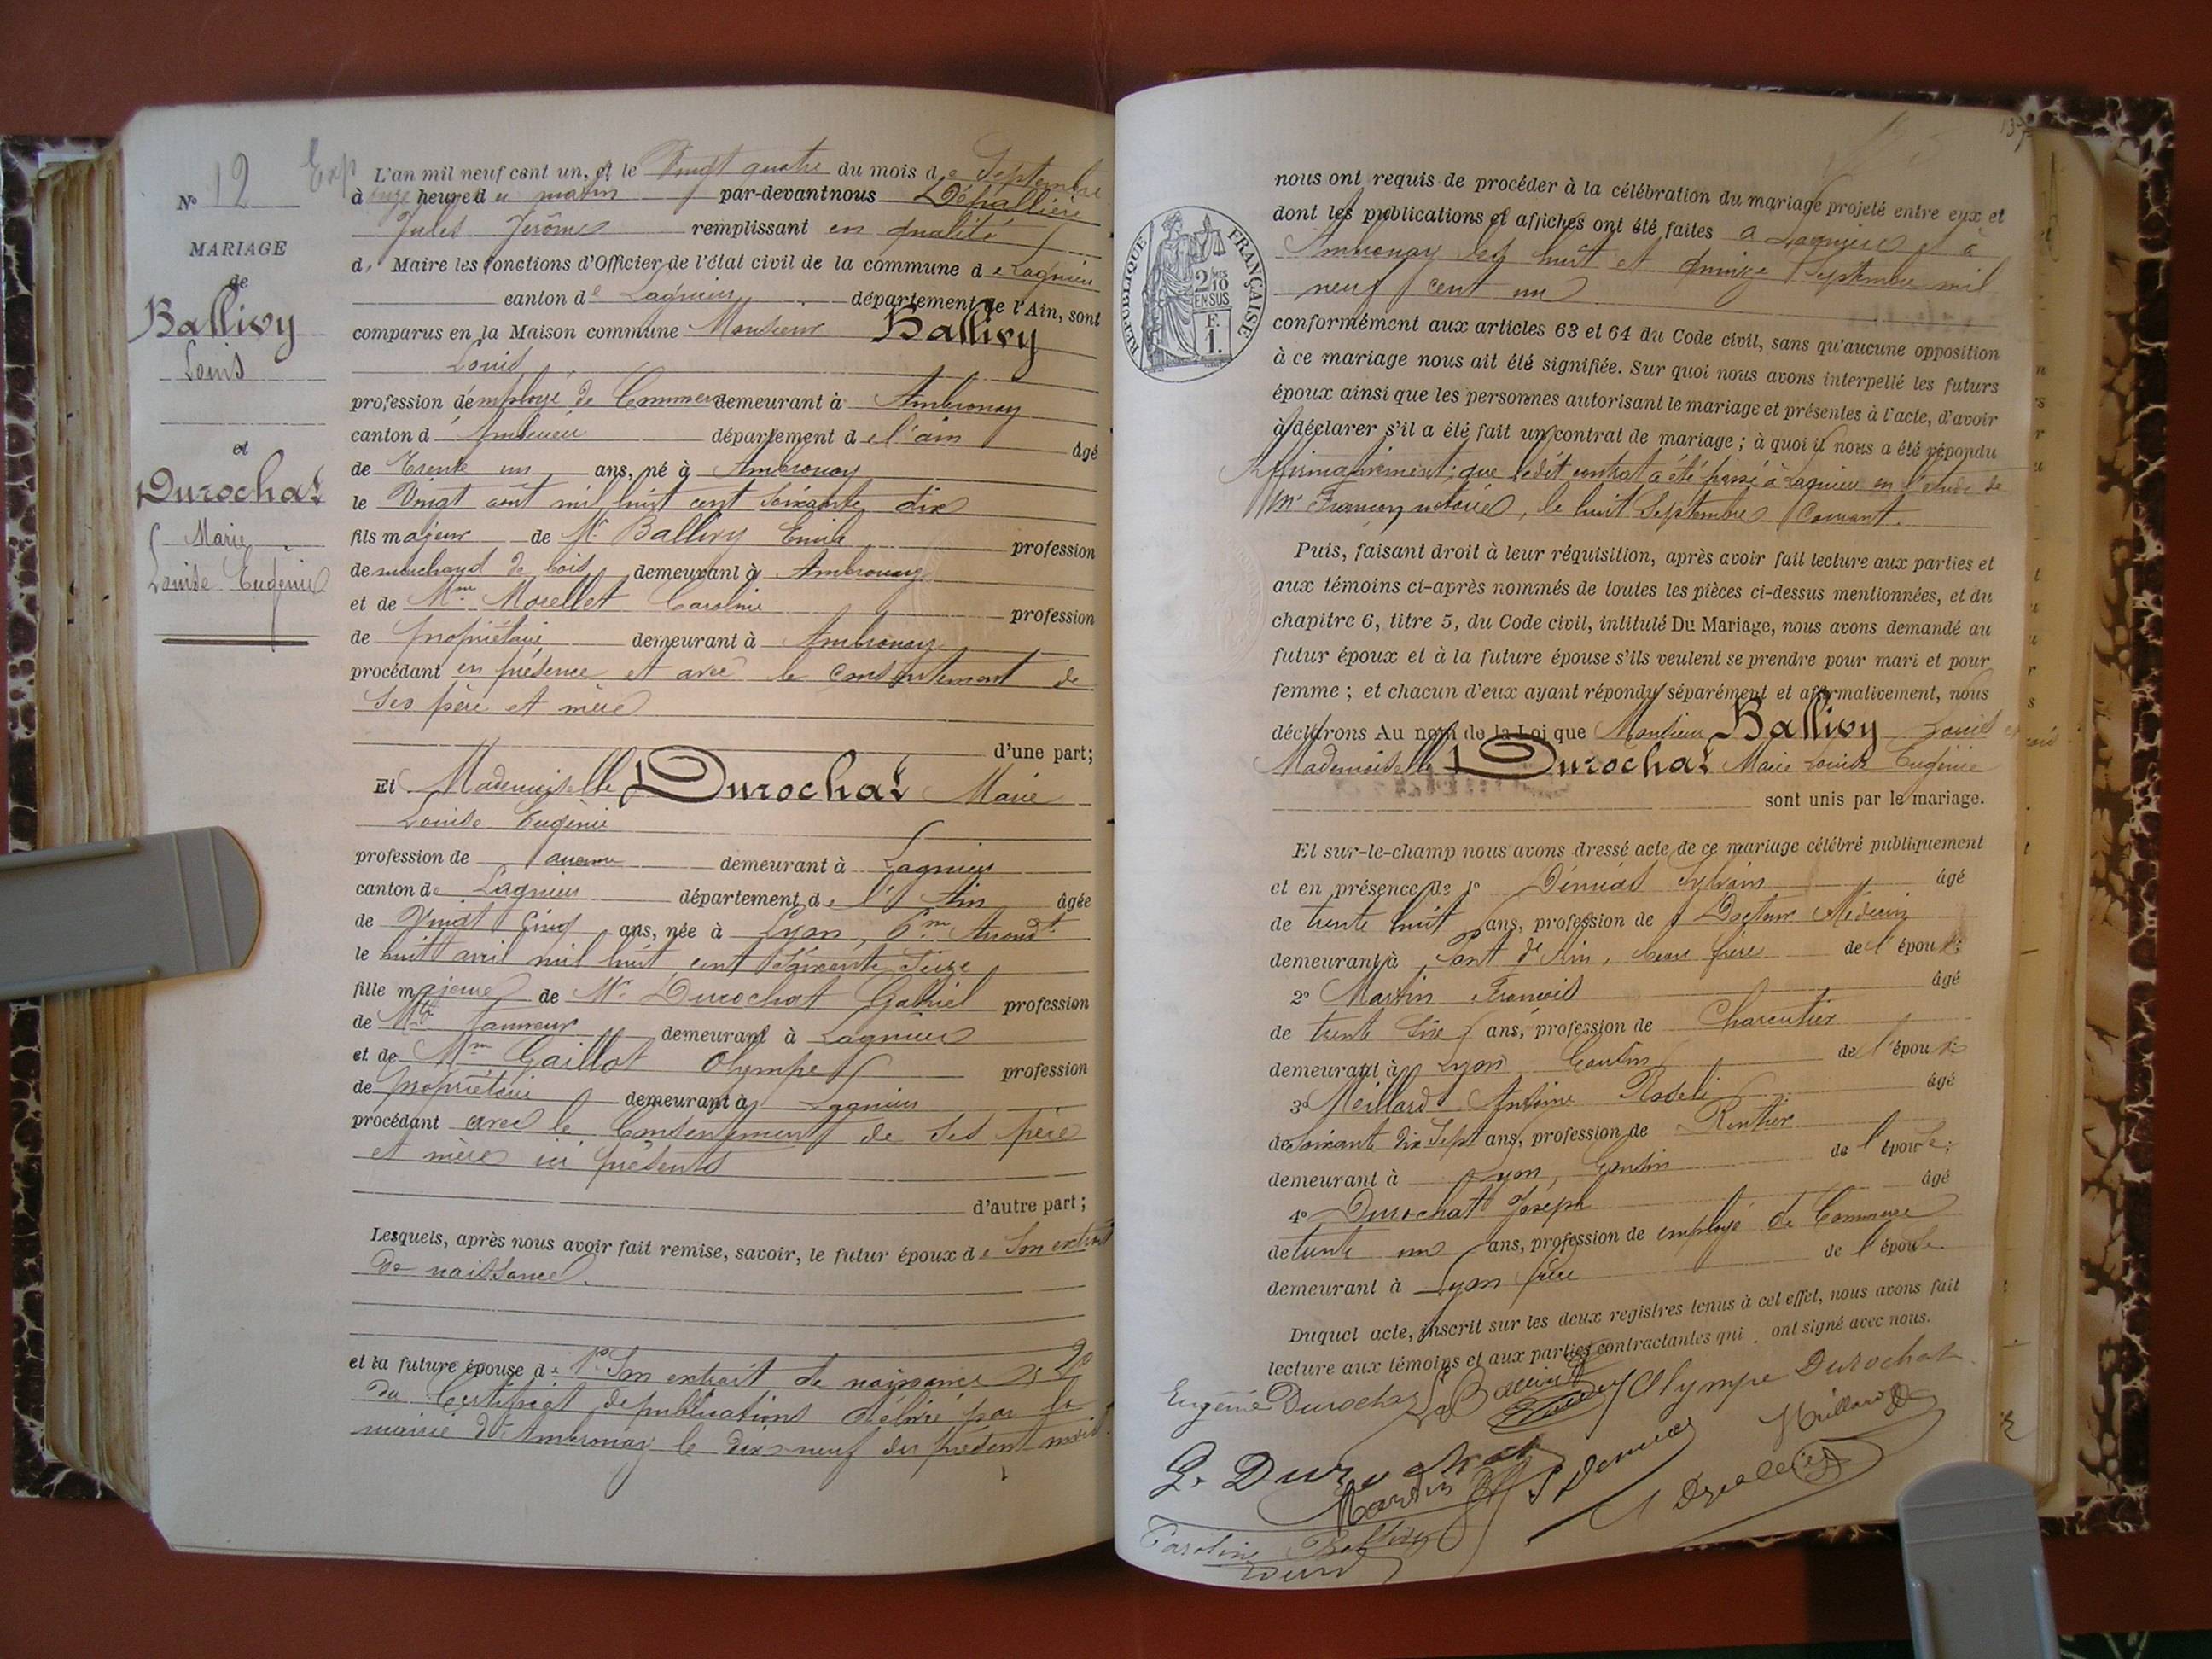 N° 12
MARIAGE
de
Ballivy
Louis
et
Durochat
Marie
Louise Eugénie
Exp
L'an mil neuf cent un, et le Vingt quatre du mois de Septembre
à onze heure du matin par-devant nous Dépallière
Jules Jérôme remplissant en qualité
de Maire les fonctions d'Officier de l'état civil de la commune de Lagnieu
canton de Lagnieu département de l'Ain, sont
comparus en la Maison commune Monsieur Ballivy
Louis
profession d'employé de Commerce demeurant à Ambronay
canton d'Ambérieu département de l'ain âgé
de Trente un ans, né à Ambronay
le Vingt août mil huit cent soixante dix
fils majeur de Mr Ballivy Emile profession
de marchand de bois demeurant à Ambronay
et de Mme Morellet Caroline profession
de propriétaire demeurant à Ambronay
procédant en présence et avec le consentement de
ses père et mère
d'une part;
Et Mademoiselle Durochat Marie
Louise Eugénie
profession de aucune demeurant à Lagnieu
canton de Lagnieu département de l'Ain âgée
de Vingt Cinq ans, née à Lyon, 6me Arrondt
le huit avril mil huit cent soixante seize
fille majeure de Mr Durochat Gabriel profession
de Md tanneur demeurant à Lagnieu
et de Mme Gaillot Olympe profession
de propriétaire demeurant à Lagnieu
procédant avec le Consentement de ses père
et mère ici présents
d'autre part;
Lesquels, après nous avoir fait remise, savoir, le futur époux de son extrait
de naissance.
et la future épouse de 1° Son extrait de naissance 2°
du Certificat de publications délivré par la
mairie d'Ambronay le dix-neuf du présent mois.
RÉPUBLIQUE FRANÇAISE
2 MES
10
EN SUS
F.
1.
nous ont requis de procéder à la célébration du mariage projeté entre eux et
dont les publications et affiches ont été faites à Lagnieu et à
Ambronay les huit et quinze Septembre mil
neuf cent un
conformément aux articles 63 et 64 du Code civil, sans qu'aucune opposition
à ce mariage nous ait été signifiée. Sur quoi nous avons interpellé les futurs
époux ainsi que les personnes autorisant le mariage et présentes à l'acte, d'avoir
à déclarer s'il a été fait un contrat de mariage; à quoi il nous a été répondu
Affirmativement; que ledit contrat a été passé à Lagnieu en l'étude de
Me Françon notaire, le huit Septembre Courant.
Puis, faisant droit à leur réquisition, après avoir fait lecture aux parties et
aux témoins ci-après nommés de toutes les pièces ci-dessus mentionnées, et du
chapitre 6, titre 5, du Code civil, intitulé Du Mariage, nous avons demandé au
futur époux et à la future épouse s'ils veulent se prendre pour mari et pour
femme; et chacun d'eux ayant répondu séparément et affirmativement, nous
déclarons Au nom de la Loi que Monsieur Ballivy Louis et
Mademoiselle Durochat Marie Louise Eugénie
sont unis par le mariage.
Et sur-le-champ nous avons dressé acte de ce mariage célébré publiquement
et en présence de 1° Démias Sylvain âgé
de trente huit ans, profession de Docteur Médecin
demeurant à Pont d'Ain, beau frère de l'époux;
2° Martin François âgé
de trente six ans, profession de Charcutier
demeurant à Lyon Cousin de l'époux
3° Meillard Antoine âgé
de Soixante dix Sept ans, profession de Rentier
demeurant à Lyon, Cousin de l'épouse;
4° Durochat Joseph âgé
de trente un ans, profession de employé de Commerce
demeurant à Lyon frère de l'épouse
Duquel acte, inscrit sur les deux registres tenus à cet effet, nous avons fait
lecture aux témoins et aux parties contractantes qui ont signé avec nous.
Eugénie Durochat L Ballivy Olympe Durochat
G. Durochat Martin S Demias Meillard
Caroline Ballivy